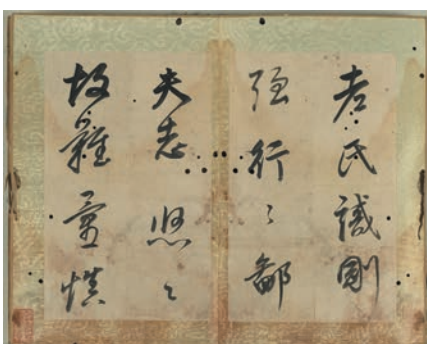 老氏誡剛
强行〻鄙
夫志悠〻
故難量慎